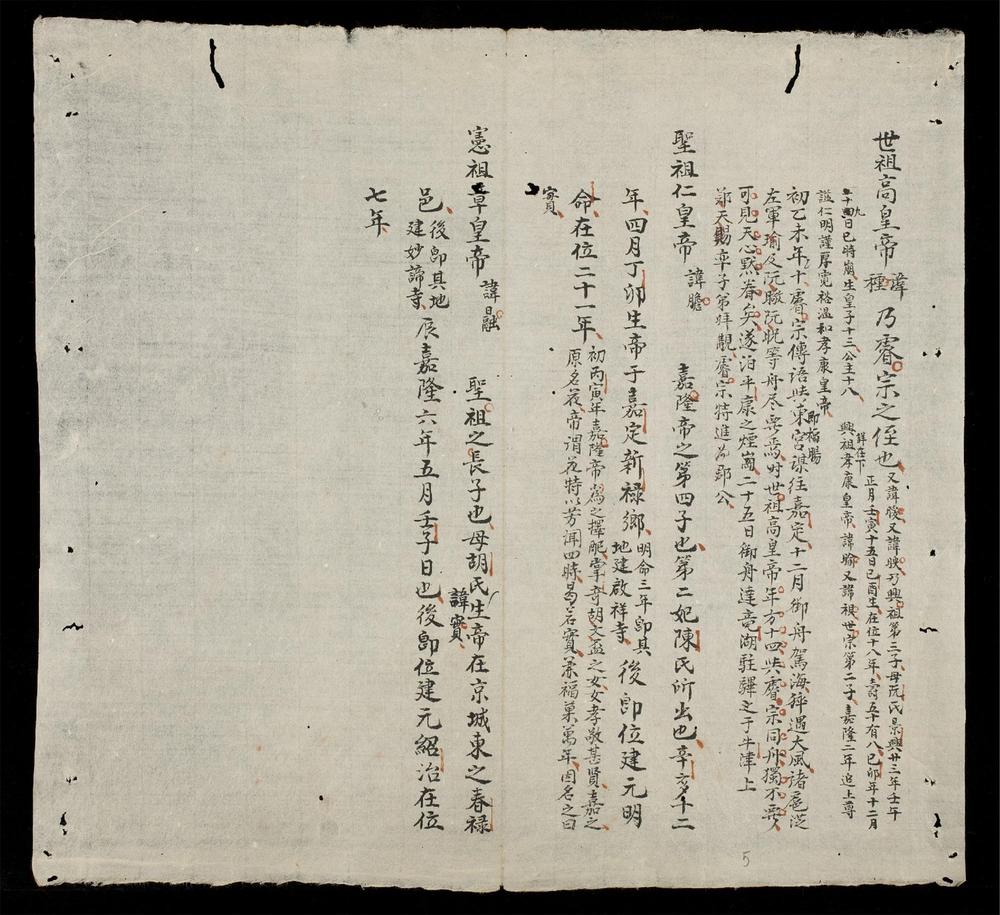 世祖高皇帝 諱種 乃睿宗之侄也 又諱㬶又諱映乃興祖第三子母阮氏景興廿三年壬午
正月壬寅十五日己酉生在位十八年壽五十有八己卯年十二月
十九日巳時崩生皇子十三公主十八 詳在下
興祖孝康皇帝諱㫻又諱祖世宗第二子嘉隆二年追上尊
謚仁明謹厚寬裕溫和孝康皇帝
初乙未年十睿宗傳語與東宮 即栢暘 謀往嘉定十二月御舟駕海猝遇大風諸扈從
左軍瑜及阮勝阮晄等舟尽焉時世祖高皇帝年方十四與睿宗同舟獨不
可見天心默眷矣遂泊平康之煙崗二十五日御舟達竜湖駐驆之于牛津上
鄭天賜率子弟拜覲睿宗特進為郡公
聖祖仁皇帝 諱膽 嘉隆帝之第四子也第二妃陳氏所出也辛亥年二
年四月丁卯生帝于嘉定新祿鄉 明命三年即其地建啟祥寺 後即位建元明
命在位二十一年 初丙寅年嘉隆帝為之擇配掌奇胡文盃之女女孝敬甚賢嘉之
原名花帝謂花特以芳洱四時曷若實兼福菓萬年因名之曰
實
憲祖章皇帝 諱曧 聖祖之長子也母胡氏 諱實 生帝在京城東之春祿
邑 後即其地建妙諦寺 辰嘉隆六年五月壬子日也後即位建元紹治在位
七年
5